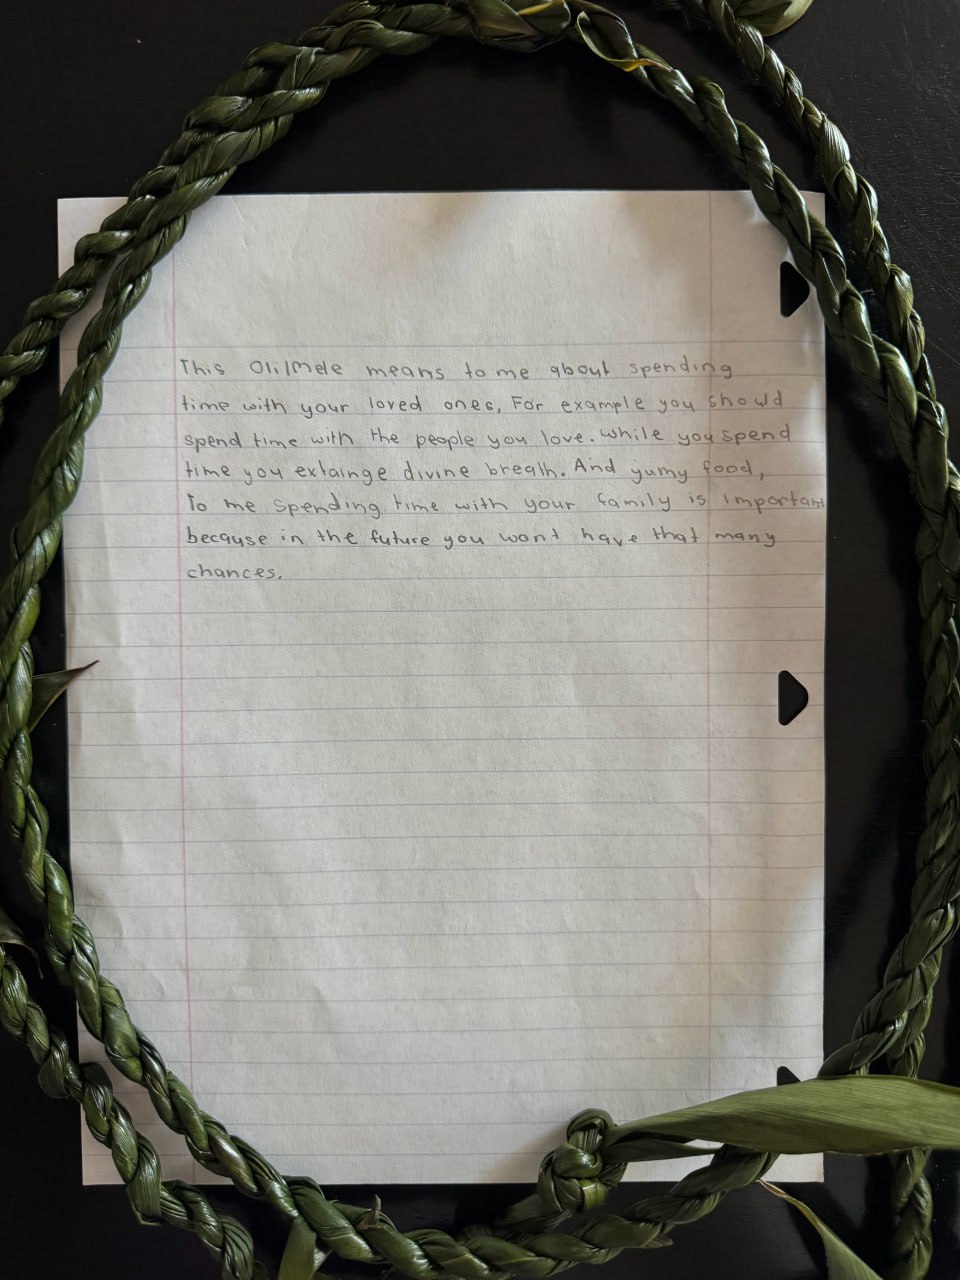 This Olilmele means to me about spending
time with your loved ones, For example you should
spend time with the people you love. While you spend
time you extainge divine breath. And yumy food,
To me spending time with your family is important
because in the future you wont have that many
chances.